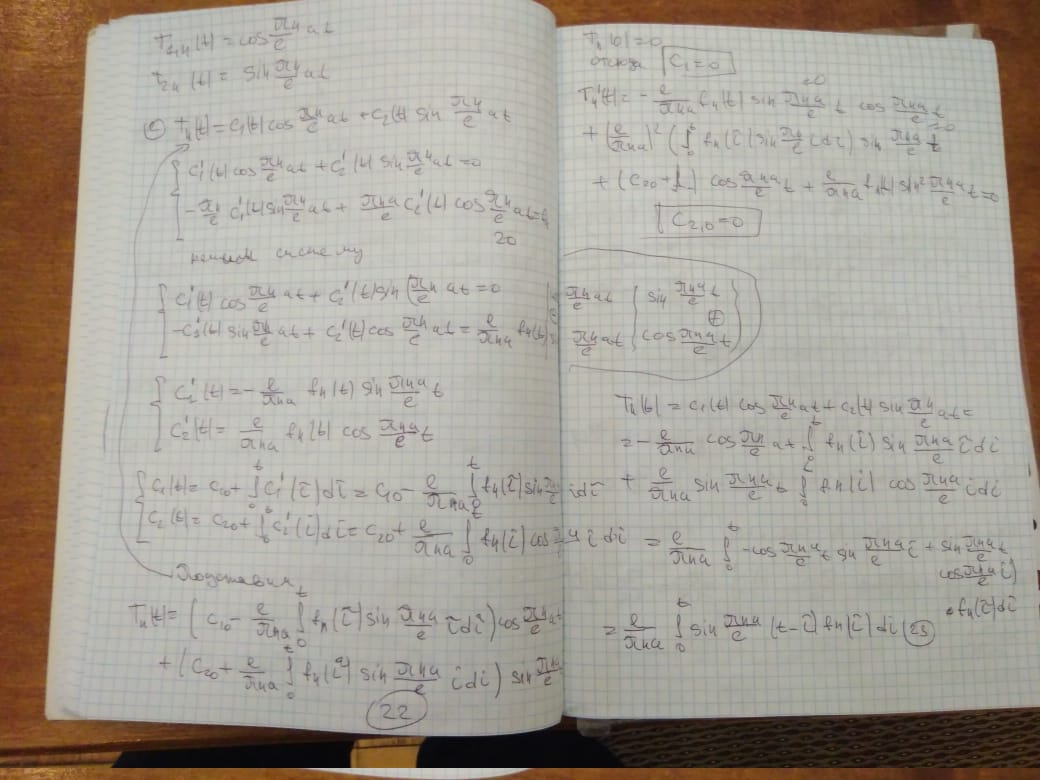 T₁ₙ(t) = cos πn/e at
T₂ₙ(t) = sin πn/e at
Tₙ(t) = C₁(t) cos πn/e at + C₂(t) sin πn/e at
C₁'(t) cos πn/e at + C₂'(t) sin πn/e at = 0
-πn/e C₁'(t) sin πn/e at + πna/e C₂'(t) cos πn/e at = fₙ
20
систему
C₁'(t) cos πn/e at + C₂'(t) sin πn/e at = 0
-C₁'(t) sin πn/e at + C₂'(t) cos πn/e at = e/πna fₙ(t)
C₁'(t) = -e/πna fₙ(t) sin πna/e t
C₂'(t) = e/πna fₙ(t) cos πna/e t
C₁(t) = C₁₀ + ∫₀ᵗ C₁'(τ)dτ = C₁₀ - e/πna ∫₀ᵗ fₙ(τ) sin πna/e τdτ
C₂(t) = C₂₀ + ∫₀ᵗ C₂'(τ)dτ = C₂₀ + e/πna ∫₀ᵗ fₙ(τ) cos πna/e τdτ
Подставим
Tₙ(t) = (C₁₀ - e/πna ∫₀ᵗ fₙ(τ) sin πna/e τdτ) cos πn/e at
+ (C₂₀ + e/πna ∫₀ᵗ fₙ(τ) sin πna/e τdτ) sin πna/e
22
Tₙ(0) = 0
откуда C₁ = 0
Tₙ'(t) = - e/πna fₙ(t) sin πna/e t cos πna/e t
+ (e/πna)² (∫₀ᵗ fₙ(τ) sin πn/e τdτ) sin πna/e t
+ (C₂₀ + ) cos πna/e t + e/πna fₙ(t) sin² πna/e t = 0
C₂,₀ = 0
πn/e at | sin πna/e t
πn/e at | cos πna/e t
Tₙ(t) = C₁(t) cos πn/e at + C₂(t) sin πn/e at =
= -e/πna cos πn/e at ∫₀ᵗ fₙ(τ) sin πna/e τdτ
+ e/πna sin πna/e t ∫₀ᵗ fₙ(τ) cos πna/e τdτ
= e/πna ∫₀ᵗ -cos πna/e t sin πna/e τ + sin πna/e t
cos πna/e τ)
• fₙ(τ)dτ
= e/πna ∫₀ᵗ sin πna/e (t-τ) fₙ(τ)dτ 23